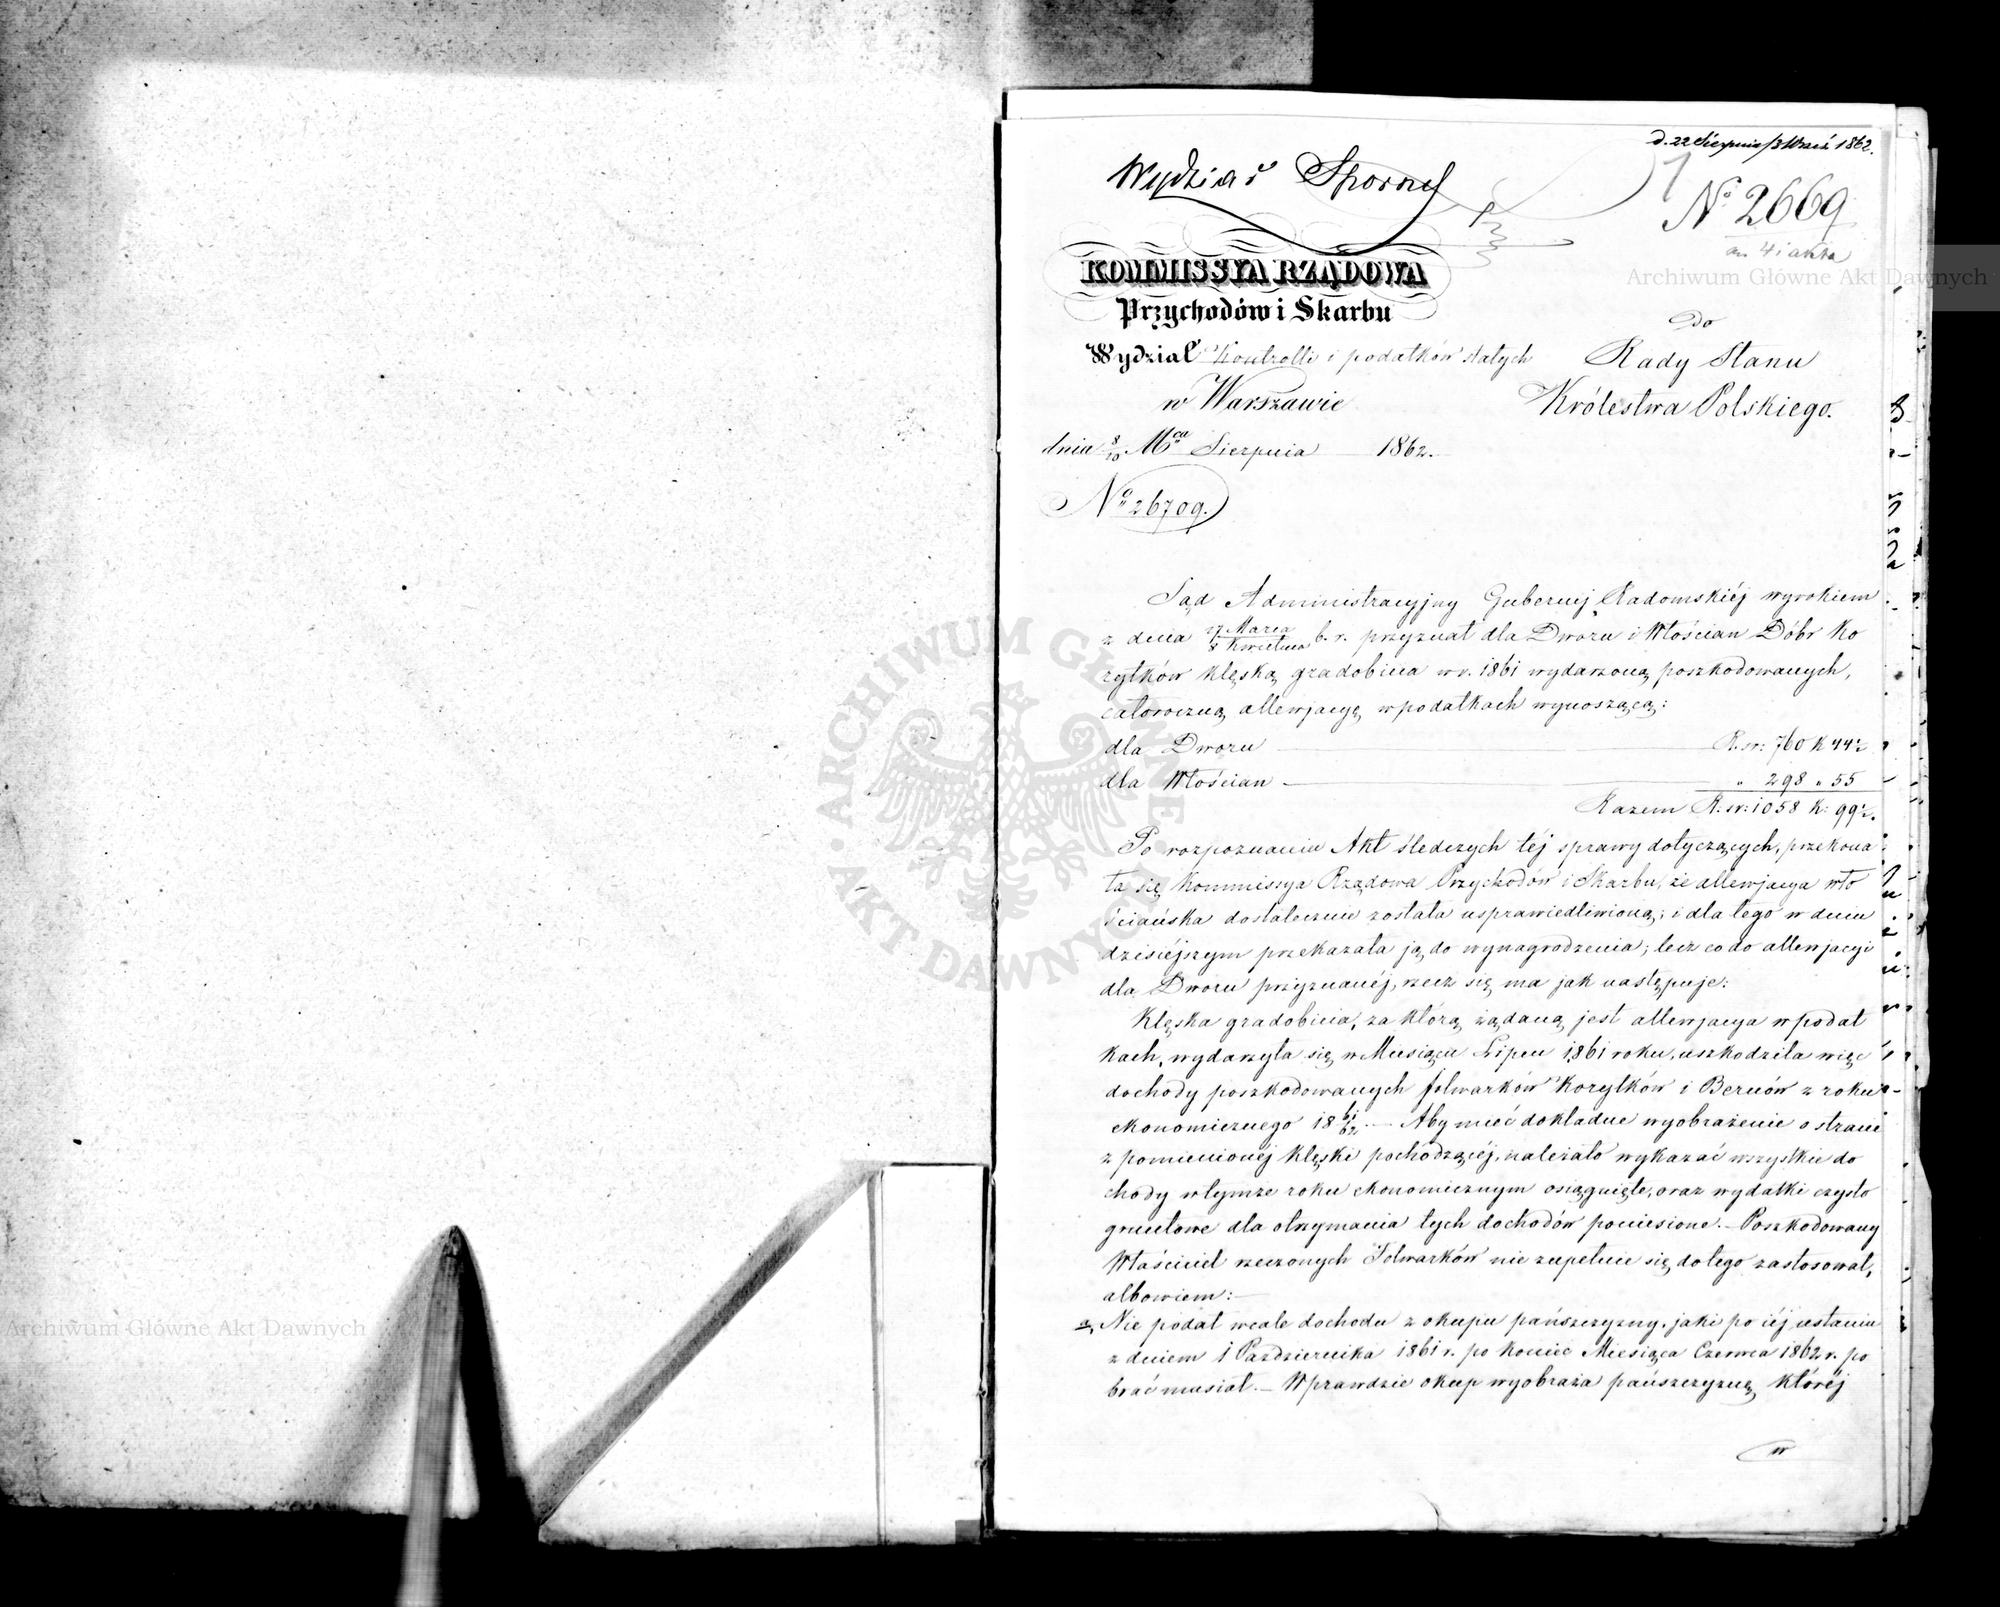 d. 22 Sierpnia/3 Wrześ 1862.
Wydział Sporny
1
No 2669
an. 4 i akta
KOMMISSYA RZĄDOWA
Przychodów i Skarbu
Wydział Kontrolli i podatków stałych
w Warszawie
dnia 8/20 Mca Sierpnia 1862.
No 26709.
Do
Rady Stanu
Królestwa Polskiego.
Sąd Administracyjny Gubernij Radomskiéj wyrokiem
z dnia 27 Marca / 8 Kwietnia b. r. przyznał dla Dworu i Włościan Dóbr Ko
rytków klęską gradobicia w r. 1861 wydarzoną poszkodowanych,
całoroczną allewjacyę w podatkach wynoszącą:
dla Dworu R. sr: 760 K 44½
dla Włościan " 298 " 55
Razem R. sr: 1058 K: 99½.
Po rozpoznaniu Akt śledczych téj sprawy dotyczących, przekona
ła się Kommissya Rządowa Przychodów i Skarbu, że allewjacya wło
ściańska dostatecznie została usprawiedliwioną; i dla tego w dniu
dzisiéjszym przekazała ją do wynagrodzenia; lecz co do allewjacyi
dla Dworu przyznanéj, rzecz się ma jak następuje:
Klęska gradobicia, za którą żądaną jest allewjacya w podat
kach, wydarzyła się w Miesiącu Lipcu 1861 roku, uszkodziła więc
dochody poszkodowanych folwarków Korytków i Bernów z roku
ekonomicznego 1861/62. — Aby mieć dokładne wyobrażenie o stracie
z pomienionéj klęski pochodzącéj, należało wykazać wszystkie do
chody w tymże roku ekonomicznym osiągnięte, oraz wydatki czysto
gruntowe dla otrzymania tych dochodów poniesione. — Poszkodowany
Właściciel rzeczonych Folwarków nie zupełnie się do tego zastosował,
albowiem: —
a, Nie podał wcale dochodu z okupu pańszczyzny, jaki po iéj ustaniu
z dniem 1 Października 1861 r. po koniec Miesiąca Czerwca 1862 r. po
brać musiał. — Wprawdzie okup wyobraża pańszczyznę, któréj
w
Archiwum Główne Akt Dawnych
Archiwum Główne Akt Dawnych
ARCHIWUM GŁÓWNE AKT DAWNYCH